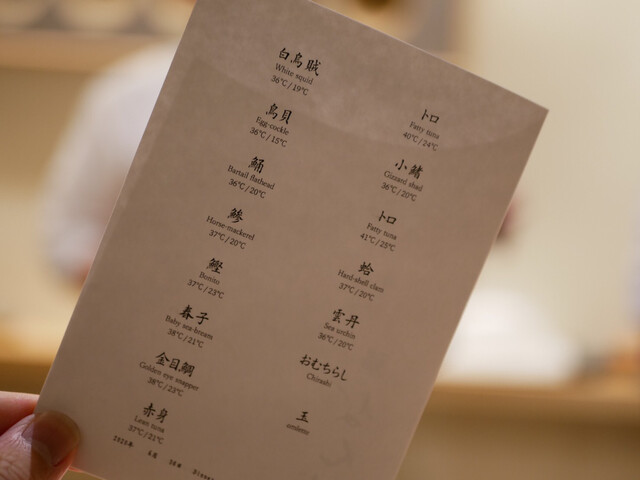 白烏賊
White squid
36℃/19℃
鳥貝
Egg-cockle
36℃/15℃
鯒
Bartail flathead
36℃/20℃
鯵
Horse-mackerel
37℃/20℃
鰹
Bonito
37℃/23℃
春子
Baby sea-bream
38℃/21℃
金目鯛
Golden eye snapper
38℃/23℃
赤身
Lean tuna
37℃/21℃
トロ
Fatty tuna
40℃/24℃
小鰭
Gizzard shad
36℃/20℃
トロ
Fatty tuna
41℃/25℃
蛤
Hard-shell clam
37℃/20℃
雲丹
Sea urchin
36℃/20℃
おむちらし
Chirashi
玉
omlette